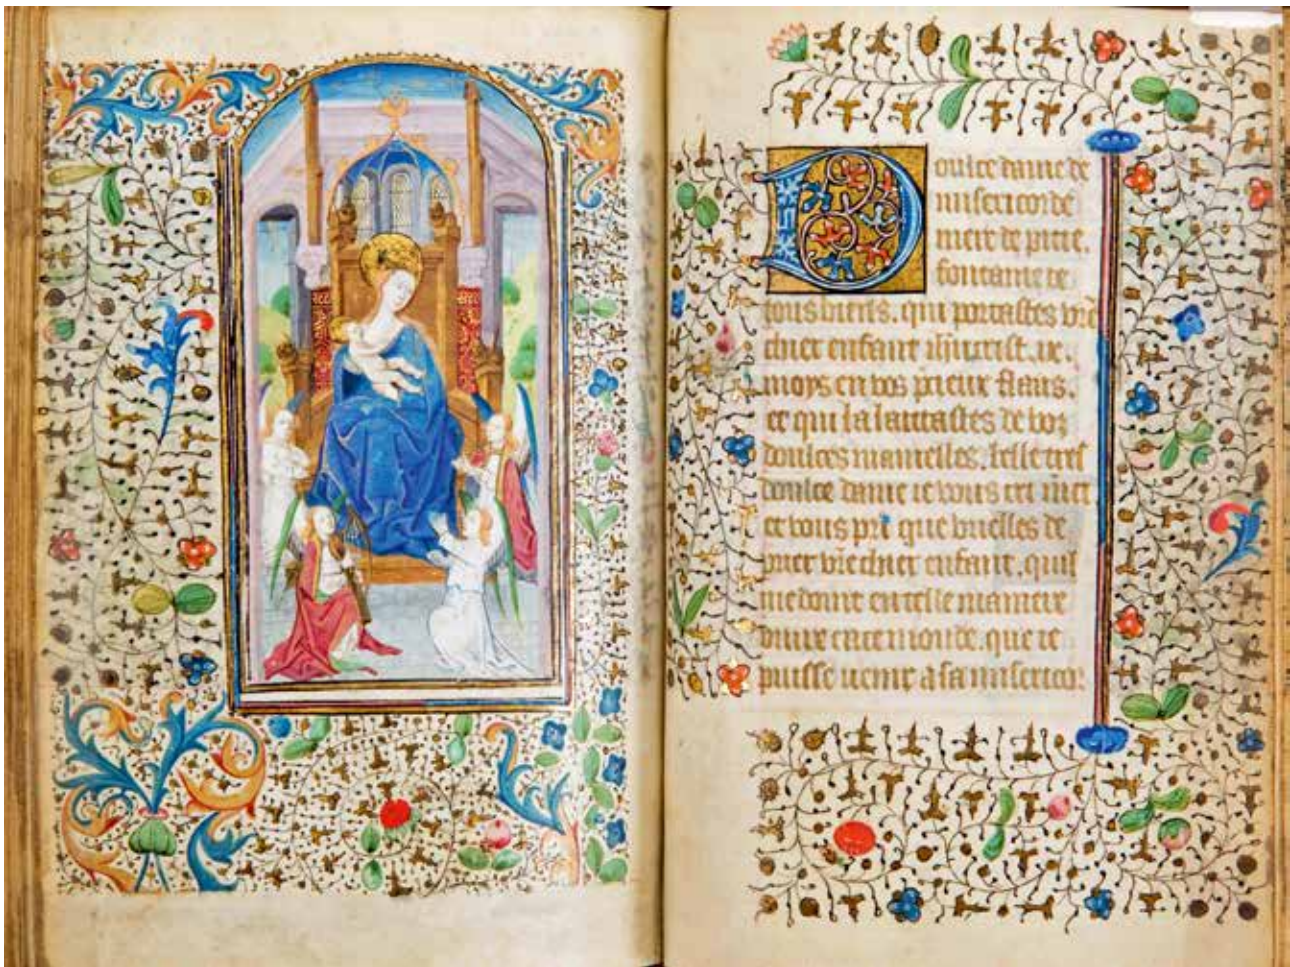 Doulce dame de
misericorde
mere de pitie.
fontaine de
tous biens. qui portastes vr̃e
chier enfant
moys en vos flans.
et qui lalaitastes de voz
doulces mamelles. belle tres
doulce dame ie vous cri
et vous pri que vuelles de
prier vr̃e chier enfant. quil
me doint en telle maniere
viure en ce monde. que ie
puisse venir a sa misericor